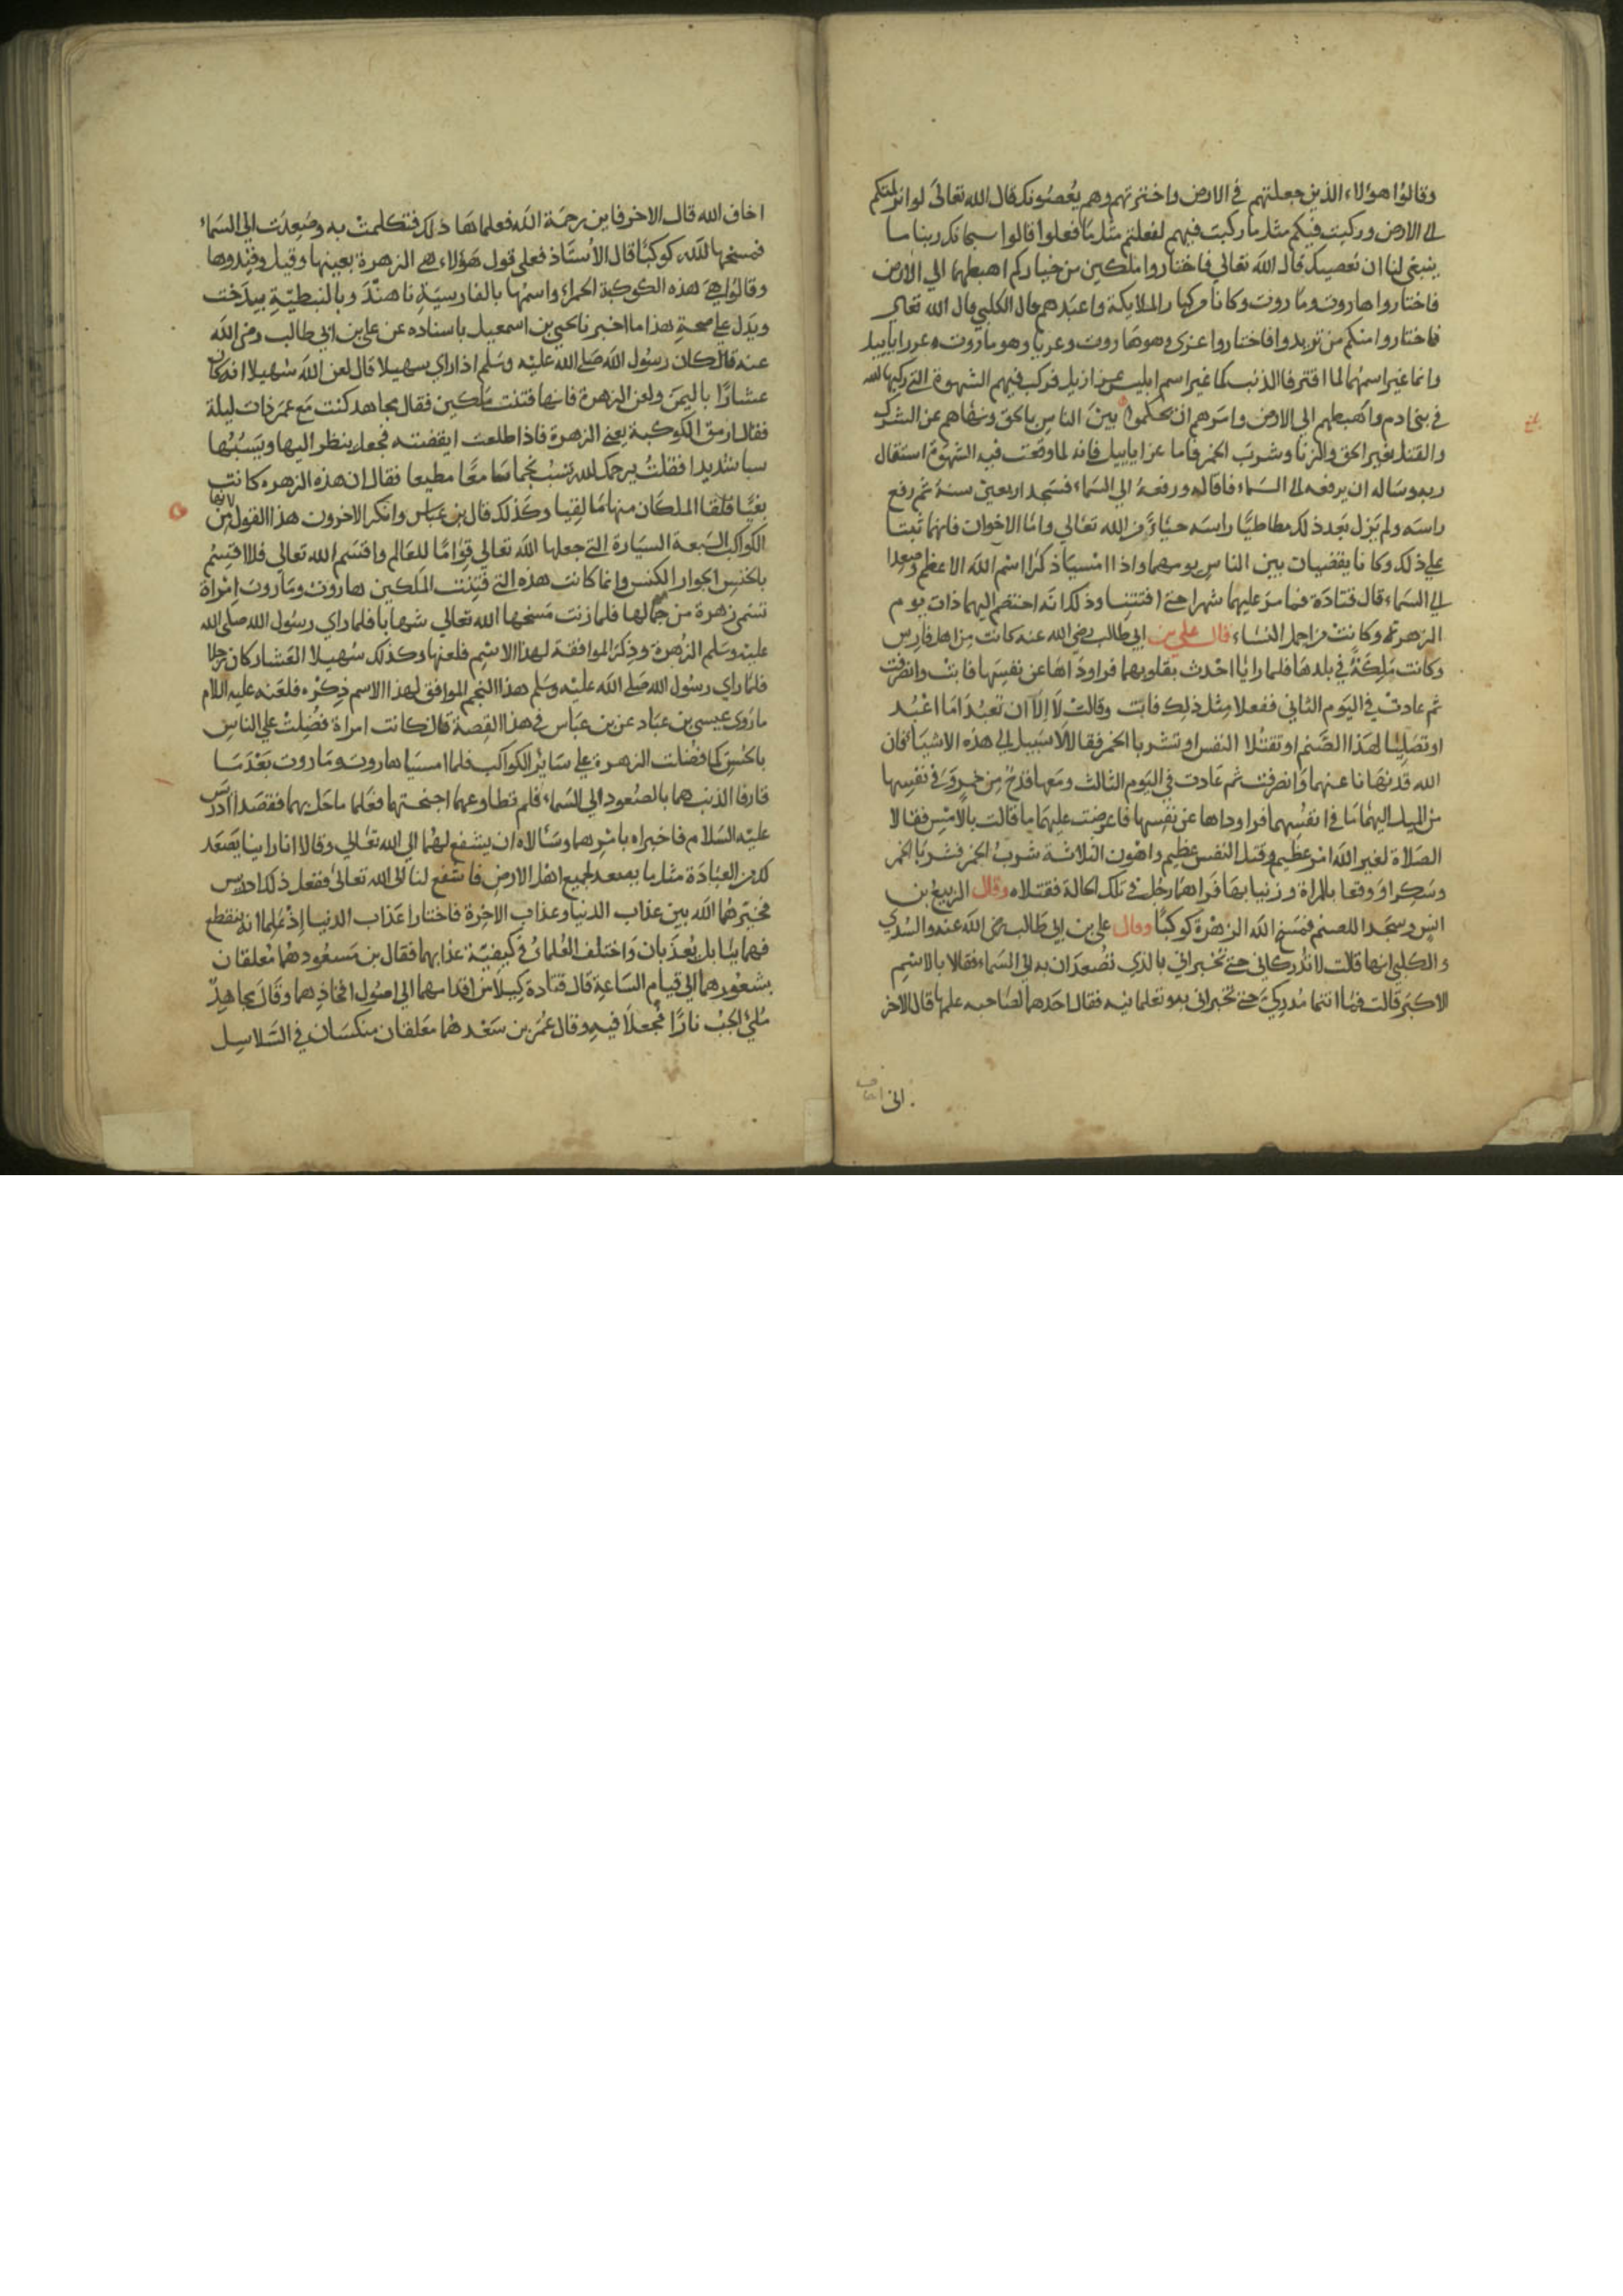 وقالوا هؤلاء الذين جعلتهم في الارض واخترتهم وهم يعصونك قال الله تعالى لو انزلتكم
الى الارض وركبت فيكم مثل ما ركبت فيهم لفعلتم مثل ما فعلوا قالوا سبحانك ربنا ما
ينبغي لنا ان نعصيك قال الله تعالي فاختاروا ملكين من خياركم اهبطهما الي الارض
فاختاروا هاروت وماروت وكانا من الملايكة واعبدهم قال الكلبي قال الله تعالى
فاختاروا منكم من تريدوا فاختاروا عزى وهو هاروت وعزبا وهو ماروت وعزراياييل
وانما غير اسمهما لما اقترفا الذنب كما غير اسم ابليس عزازيل فركب فيهم الشهوة التي ركبها الله
في بني ادم واهبطهم الى الارض وامرهم ان يحكموا بين الناس بالحق ونهاهم عن الشرك
والقتل بغير الحق والزنا وشرب الخمر فاما عزاياييل فانه لما وقعت فيه الشهوة استقال
ربه وساله ان يرفعه الى السماء فاقاله ورفعه الي السماء فسجد اربعين سنة ثم رفع
راسه ولم يزل بعد ذلك مطاطيا راسه حياء من الله تعالي واما الاخوان فانهما ثبتا
علي ذلك وكانا يقضيان بين الناس يومهما واذا امسيا ذكرا اسم الله الاعظم وصعدا
الي السماء قال قتادة فما مر عليهما شهر حتى افتتنا وذلك انه اختصم اليهما ذات يوم
الزهرة وكانت من اجمل النساء قال علي بن ابي طالب رضي الله عنه كانت من اهل فارس
وكانت ملكة في بلدها فلما رايا اخذت بقلوبهما فراوداها عن نفسها فابت وانصرفت
ثم عادت في اليوم الثاني ففعلا مثل ذلك فابت وقالت لا الا ان تعبدا ما اعبد
او تصليا لهذا الصنم او تقتلا النفس او تشربا الخمر فقالا لا سبيل الي هذه الاشيا فان
الله قد نهانا عنها وانصرفت ثم عادت في اليوم الثالث ومعها قدح من خمر وفي نفسها
من الميل اليهما ما في انفسهما فراوداها عن نفسها فاعرضت عليهما ما قالت بالامس فقالا
الصلاة لغير الله امر عظيم وقتل النفس عظيم واهون الثلاثة شرب الخمر فشربا الخمر
وسكرا ووقعا بالمراة وزنيا بها فراهما رجل في تلك الحالة فقتلاه وقال الربيع بن
انس وسجدا للصنم فمسخ الله الزهرة كوكبا وقال علي بن ابي طالب رضي الله عنه والسدي
والكلبي انها قالت لا تدركاني حتى تخبراني بالذي تصعدان به الى السماء فقالا بالاسم
الاكبر قالت فما انتما مدركي حتى تخبراني به وتعلمانيه فقال احدهما لصاحبه علمها قال الاخر
اني اخاف
اخاف الله قال الاخر فاين رحمة الله فعلماها ذلك فتكلمت به وصعدت الي السماء
فمسخها الله كوكبا قال الاستاذ فعلى قول هؤلاء هي الزهرة بعينها وقيل وقيدوها
وقالوا هي هذه الكوكبة الحمراء واسمها بالفارسية ناهند وبالنبطية بيدخت
ويدل على صحة هذا ما اخبرنا يحيي بن اسمعيل باسناده عن علي بن ابي طالب رضي الله
عنه قال كان رسول الله صلى الله عليه وسلم اذا راي سهيلا قال لعن الله سهيلا انه كان
عشارا باليمن ولعن الزهرة فانها فتنت ملكين فقال مجاهد كنت مع عمر ذات ليلة
فقال ارمق الكوكبة يعني الزهرة فاذا طلعت ايقضته فجعل ينظر اليها ويسبها
سبا شديدا فقلت يرحمك الله تسب نجما سامعا مطيعا فقال ان هذه الزهره كانت
بغيا فلقا الملكان منها ما لقيا وكذلك قال بن عباس وانكر الاخرون هذا القول لانها من
الكواكب السبعة السيارة التي جعلها الله تعالي قواما للعالم واقسم الله تعالي فلا اقسم
بالخنس الجوار الكنس وانما كانت هذه التي فتنت الملكين هاروت وماروت امراة
تسمى زهرة من جمالها فلما زنت مسخها الله تعالي شهابا فلما راي رسول الله صلى الله
عليه وسلم الزهرة وذكر الموافقة لهذا الاسم فلعنها وكذلك سهيلا العشار كان رجلا
فلما راي رسول الله صلى الله عليه وسلم هذا النجم الموافق لهذا الاسم ذكره فلعنه عليه السلام
ما روى عيسى بن عباد عن بن عباس في هذا القصة قال كانت امراة فضلت علي الناس
بالحسن كما فضلت الزهرة علي ساير الكواكب فلما امسيا هاروت وماروت بعد ما
قارفا الذنب هما بالصعود الي السماء فلم تطاوعهما اجنحتهما فعلما ما حل بهما فقصدا ادريس
عليه السلام فاخبراه بامرهما وسالاه ان يشفع لهما الي الله تعالي وقالا انا راينا يصعد
لك من العبادة مثل ما يصعد لجميع اهل الارض فاشفع لنا الى الله تعالى ففعل ذلك ادريس
فخيرهما الله بين عذاب الدنيا وعذاب الاخرة فاختارا عذاب الدنيا اذ علما انه ينقطع
فهما ببابل يعذبان واختلف العلماء في كيفية عذابهما فقال بن مسعود هما معلقان
بشعورهما الي قيام الساعة قال قتادة كبلا من اقدامهما الي اصول افخاذهما وقال مجاهد
ملئ الجب نارا فجعلا فيه وقال عمر بن سعد هما معلقان منكسان في السلاسل